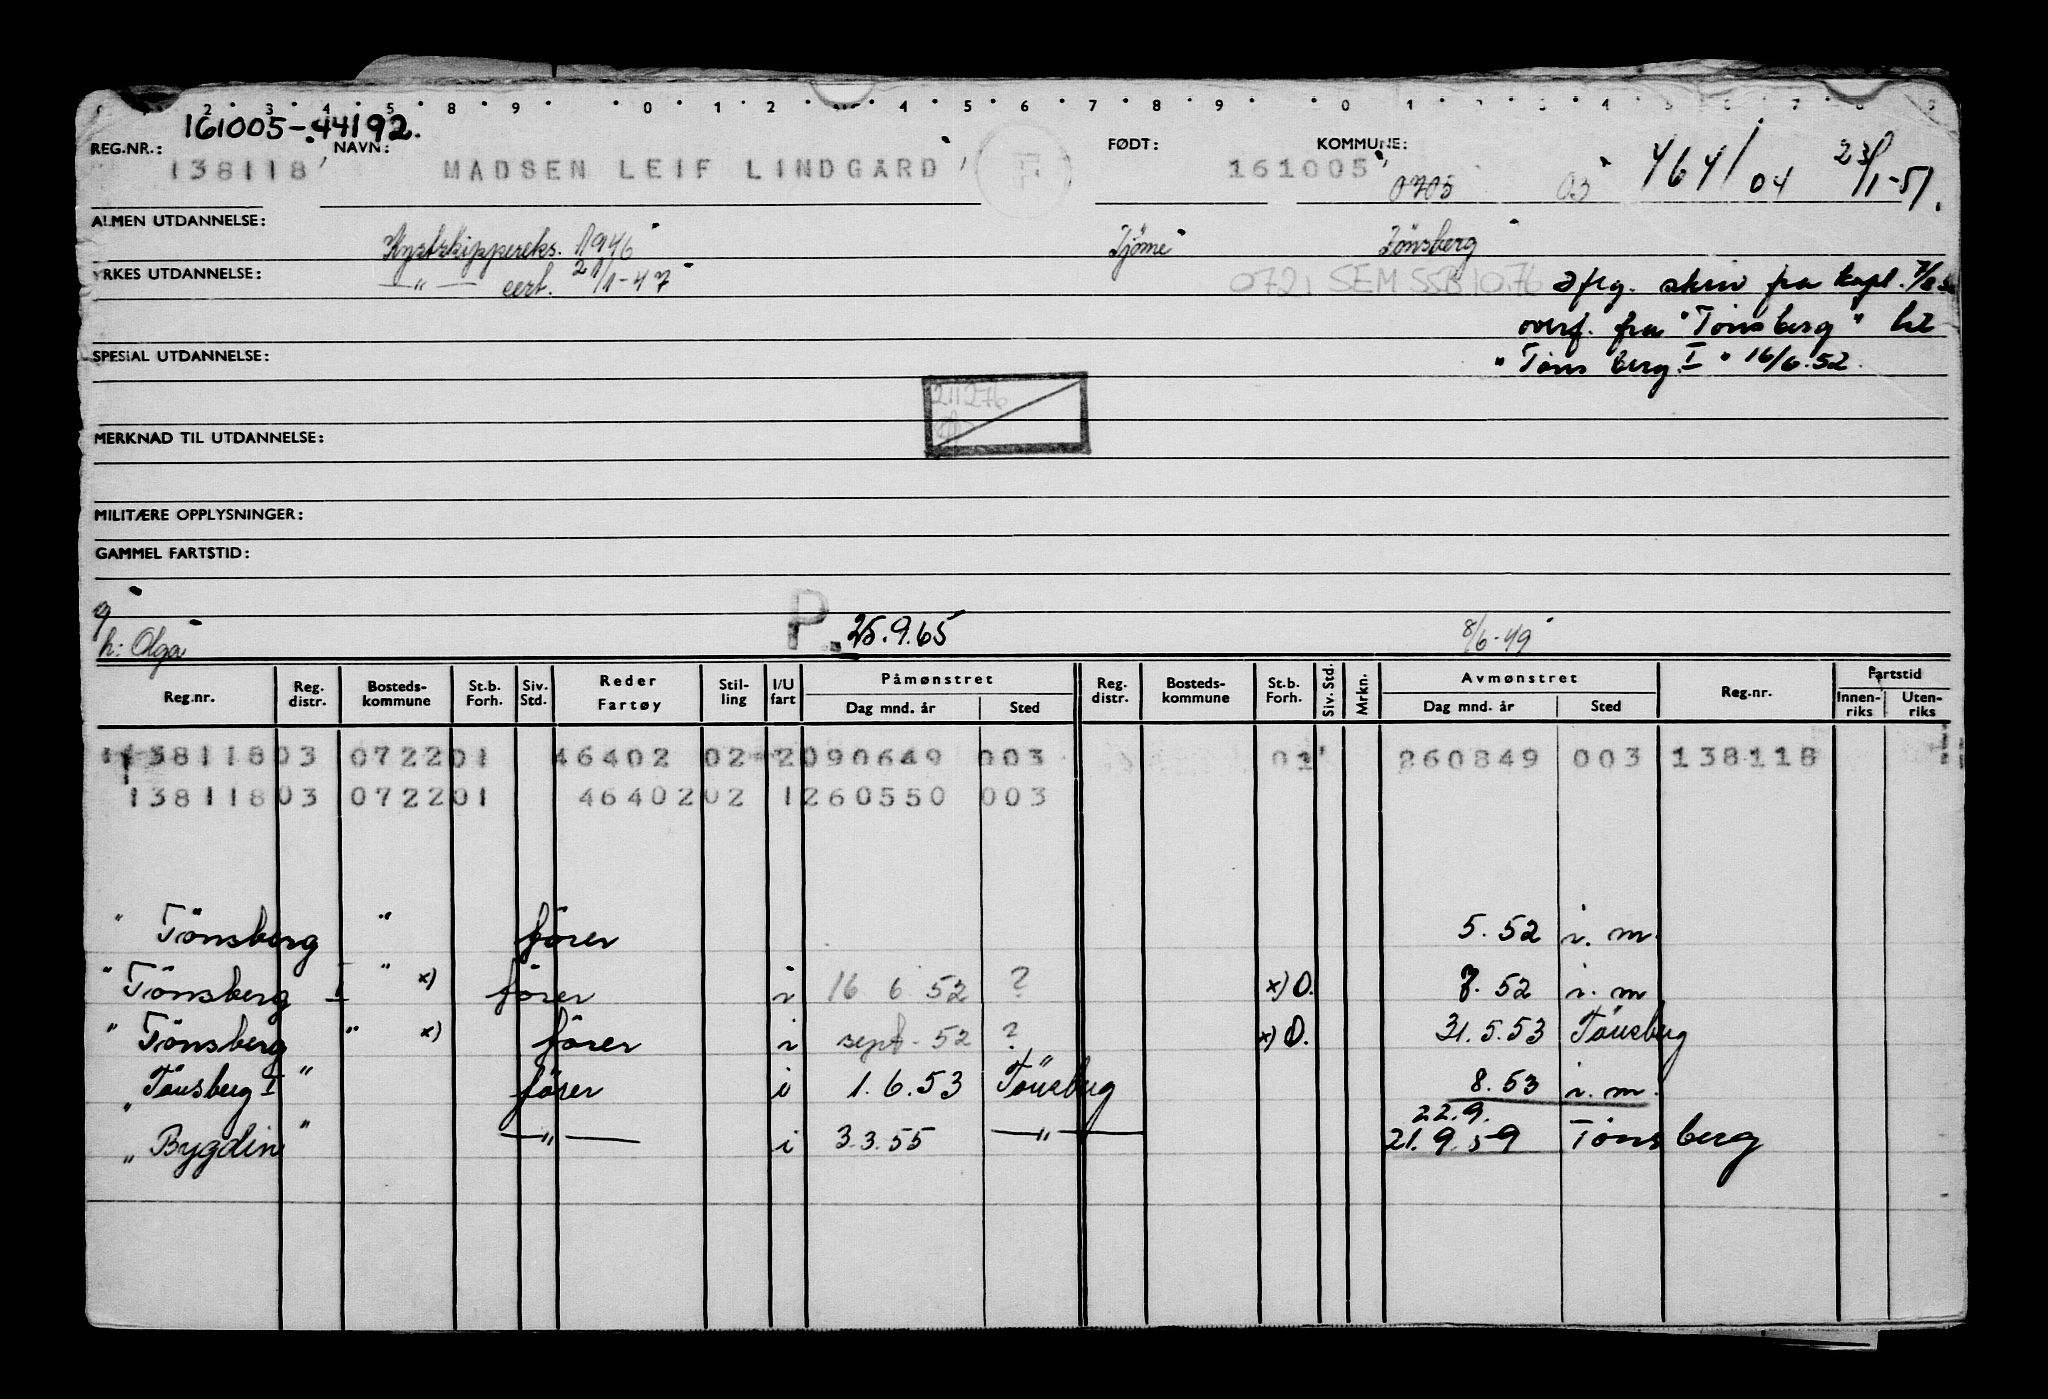 161005-44192.
REG.NR.: NAVN: FØDT: KOMMUNE:
138118 MADSEN LEIF LINDGARD 161005 0705 03 464/04 23/1-51.
ALMEN UTDANNELSE:
Kystskippereks. 1946 Tjöme Tönsberg
YRKES UTDANNELSE: —"— cert. 21/1-47
0721 SEM SSB 10.76
iflg. skriv fra kapt.
overf. fra "Tönsberg" til
SPESIAL UTDANNELSE:
"Tönsberg I" 16/6.52.
211276
MERKNAD TIL UTDANNELSE:
MILITÆRE OPPLYSNINGER:
GAMMEL FARTSTID:
g
h: Olga P. 25.9.65 8/6-49
Reg.nr. Reg. distr. Bosteds-kommune St.b. Forh. Siv. Std. Reder Fartøy Stil-ling I/U fart Påmønstret Dag mnd. år Sted Reg. distr. Bosteds-kommune St.b. Forh. Siv. Std. Mrkn. Avmønstret Dag mnd. år Sted Reg.nr. Fartstid Innen-riks Uten-riks
138118 03 0722 01 46402 02 2 090649 003 01 260849 003 138118
138118 03 0722 01 46402 02 1 260550 003
"Tönsberg" förer 5.52 i. m.
"Tönsberg I" x) förer i 16 6 52 ? x) O. 7.52 i. m
"Tönsberg" x) förer i sept. 52 ? x) O. 31.5.53 Tönsberg
"Tönsberg I" förer i 1.6.53 Tönsberg 8.53 i. m.
22.9.
"Bygdin" —"— i 3.3.55 —"— 21.9.59 Tönsberg